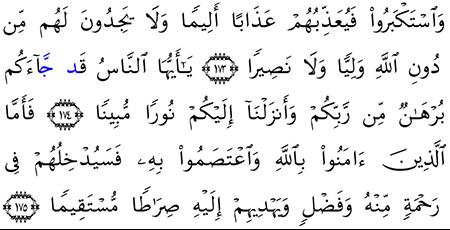 وَٱسْتَكْبَرُوا۟ فَيُعَذِّبُهُمْ عَذَابًا أَلِيمًا وَلَا يَجِدُونَ لَهُم مِّن
دُونِ ٱللَّهِ وَلِيًّا وَلَا نَصِيرًا ﴿١٧٣﴾ يَـٰٓأَيُّهَا ٱلنَّاسُ قَد جَّآءَكُم
بُرْهَـٰنٌ مِّن رَّبِّكُمْ وَأَنزَلْنَآ إِلَيْكُمْ نُورًا مُّبِينًا ﴿١٧٤﴾ فَأَمَّا
ٱلَّذِينَ ءَامَنُوا۟ بِٱللَّهِ وَٱعْتَصَمُوا۟ بِهِۦ فَسَيُدْخِلُهُمْ فِى
رَحْمَةٍ مِّنْهُ وَفَضْلٍ وَيَهْدِيهِمْ إِلَيْهِ صِرَٰطًا مُّسْتَقِيمًا ﴿١٧٥﴾